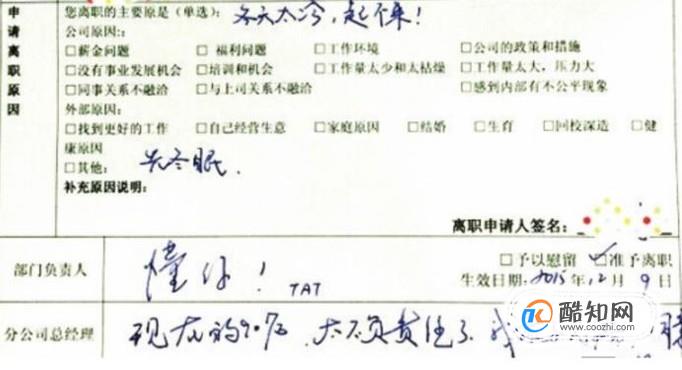 申请离职原因
您离职的主要原是(单选): 冬天太冷,起不来!
公司原因:
□薪金问题 □福利问题 □工作环境 □公司的政策和措施
□没有事业发展机会 □培训和机会 □工作量太少和太枯燥 □工作量太大,压力大
□同事关系不融洽 □与上司关系不融洽 □感到内部有不公平现象
外部原因:
□找到更好的工作 □自己经营生意 □家庭原因 □结婚 □生育 □回校深造 □健
康原因
□其他: 去冬眠.
补充原因说明:
离职申请人签名:
□予以慰留 □准予离职
部门负责人 懂你! TAT
生效日期: 2015年12月9日
分公司总经理 现在的90后,太不负责任了.我
酷知网
www.coozhi.com